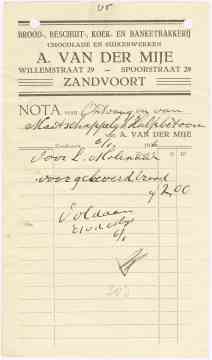 BROOD-, BESCHUIT-, KOEK- EN BANKETBAKKERIJ
CHOCOLADE EN SUIKERWERKEN
A. VAN DER MIJE
WILLEMSTRAAT 29 - SPOORSTRAAT 29
ZANDVOORT
NOTA voor Ontvangen van
Maatschappelijk Hulpbetoon
A. VAN DER MIJE
Zandvoort, 19
Voor L. Molenaar
voor geleverd brood
2,00
Voldaan